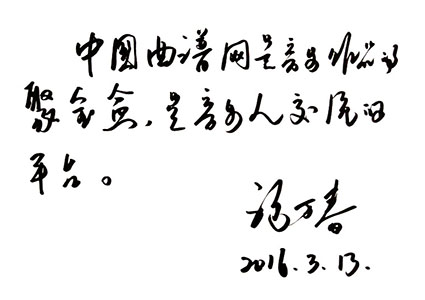 中国曲谱网是音乐作品的
聚宝盆，是音乐人交流的
平台。
万春
2016.3.13.